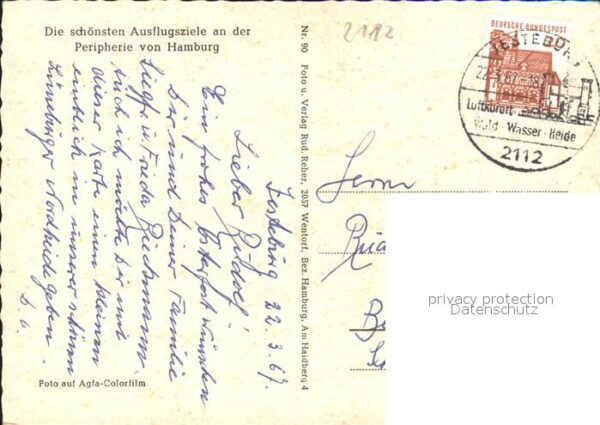 Die schönsten Ausflugsziele an der
Peripherie von Hamburg
2112
Jesteburg 22.3.67.
Lieber Rudolf!
Ein frohes Osterfest wünschen
Dir und Deiner Familie
Auch ich möchte Dir mit
dieser Karte einen kleinen
Einblick in unserer schönen
Lüneburger Nordheide geben.
Foto auf Agfa-Colorfilm
Nr. 90 Foto u. Verlag Rud. Reher, 2057 Wentorf, Bez. Hamburg, Am Haidberg 4
DEUTSCHE BUNDESPOST
JESTEBURG
Luftkurort
Wald - Wasser - Heide
2112
Herrn
privacy protection
Datenschutz